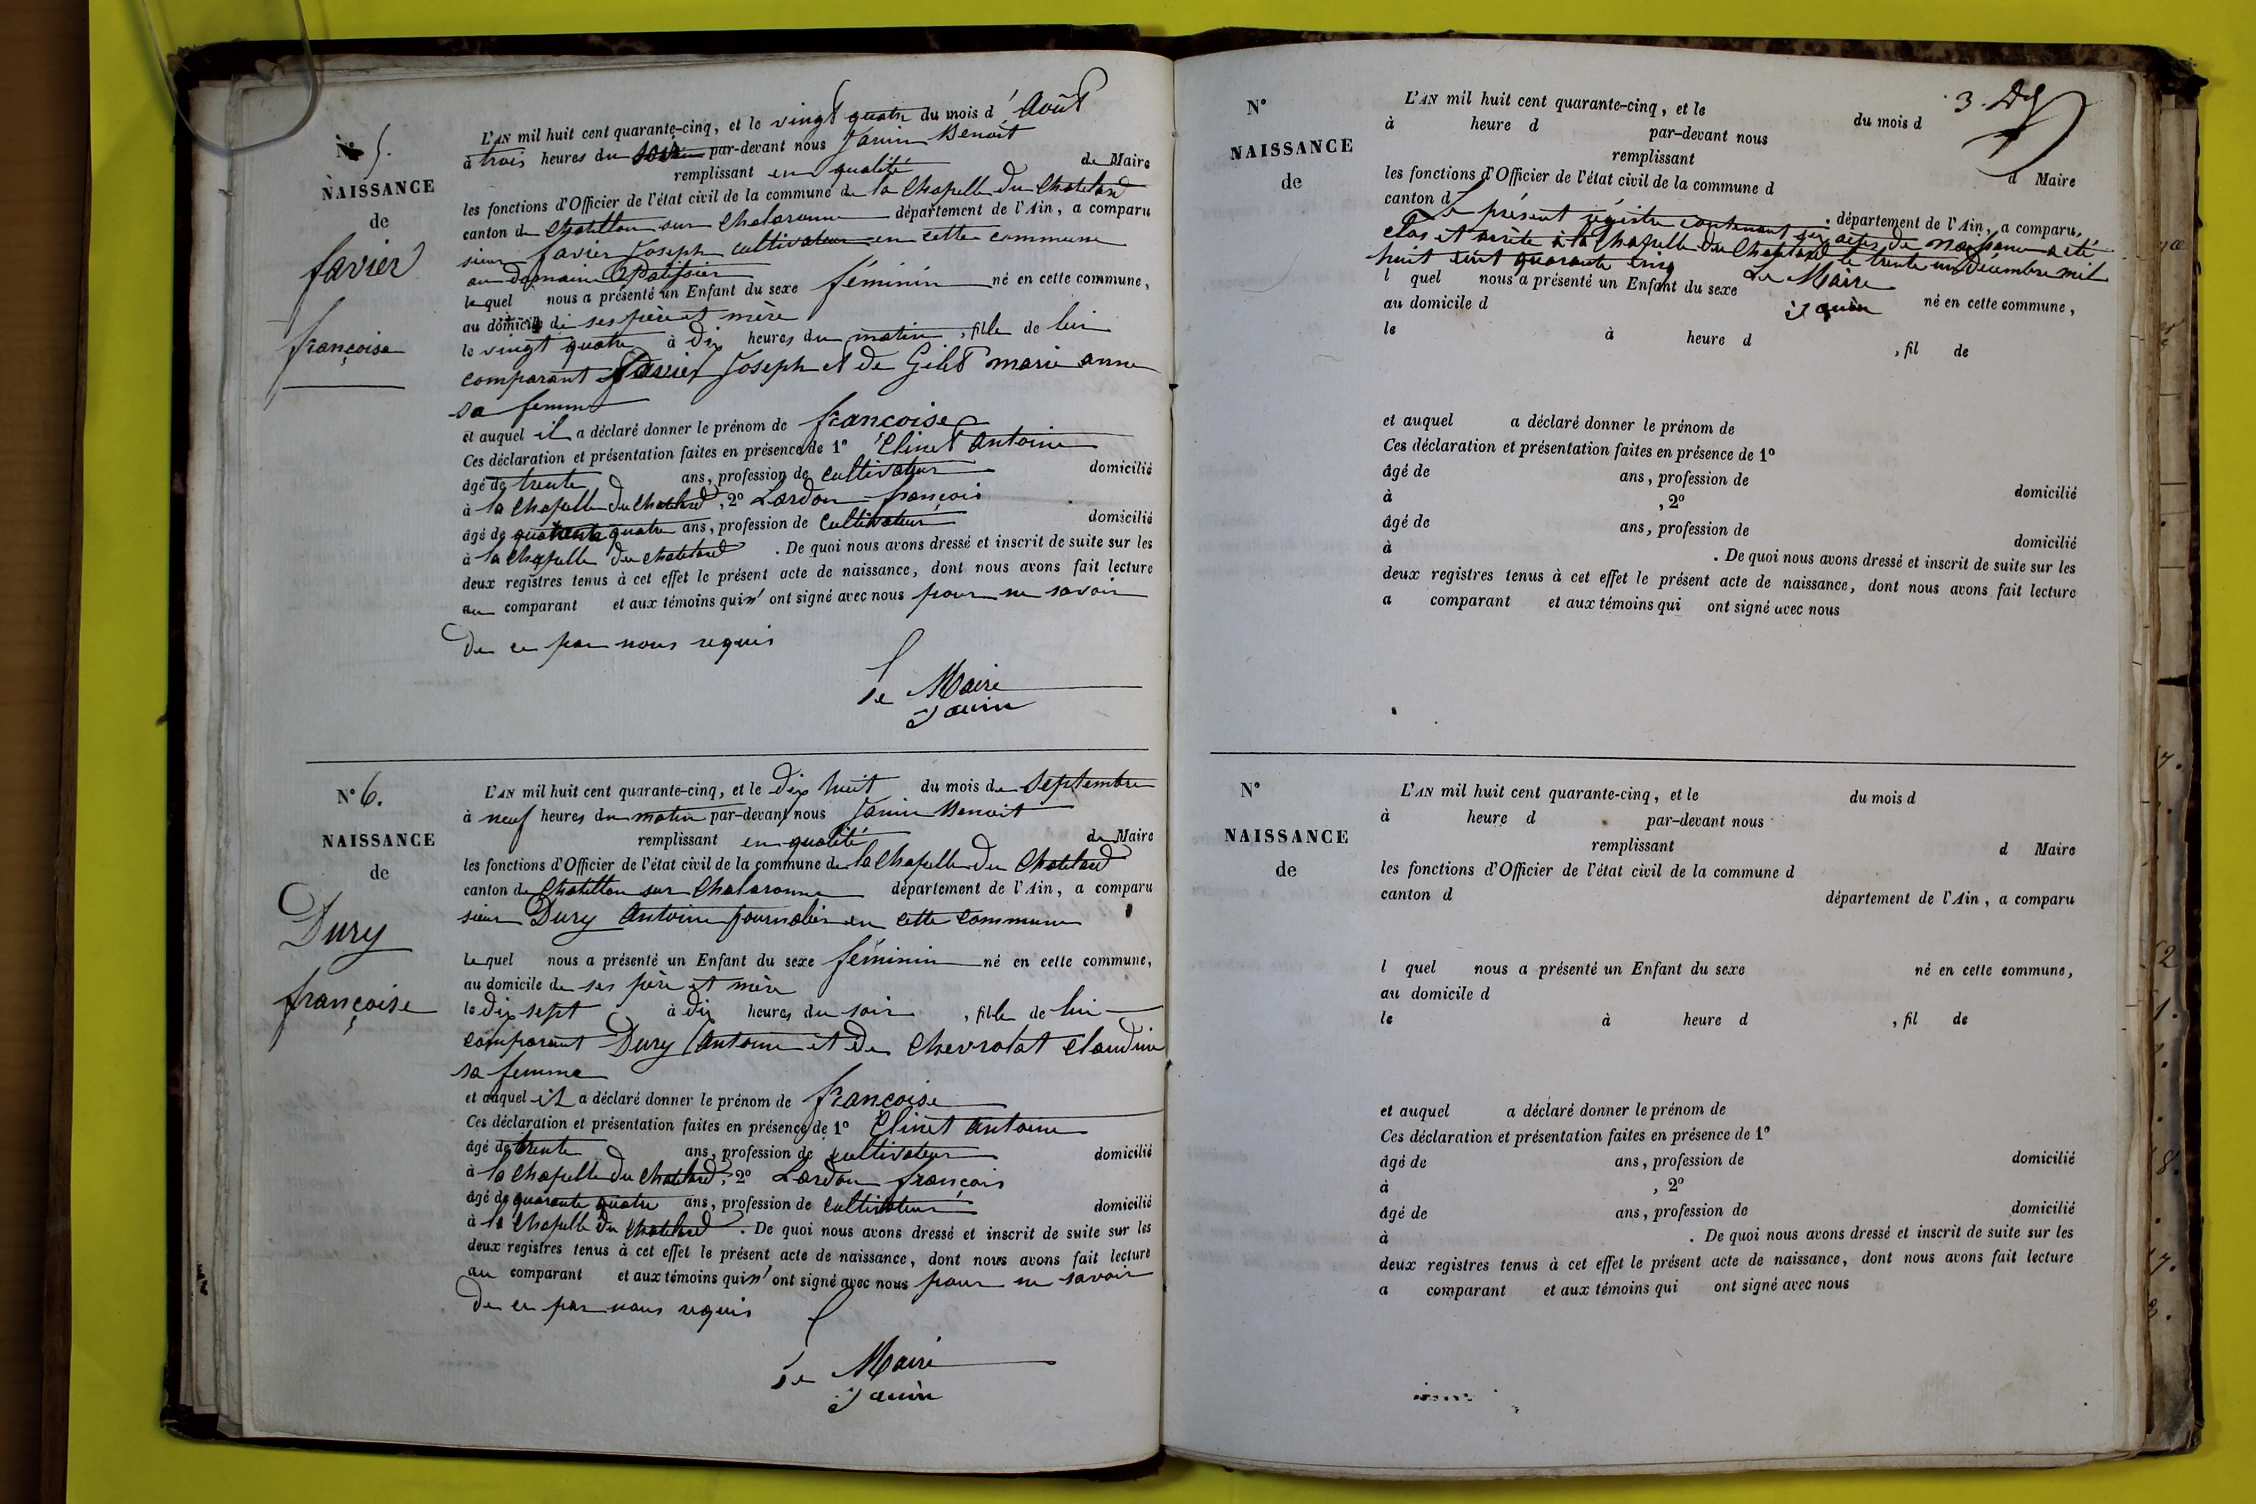 N° 5.
NAISSANCE
de
favier
françoise
L'AN mil huit cent quarante-cinq, et le vingt quatre du mois d'Août
à trois heures du soir par-devant nous Janin Benoit
remplissant en qualité de Maire
les fonctions d'Officier de l'état civil de la commune de la Chapelle du Chatelard
canton de Chatillon sur Chalaronne département de l'Ain, a comparu
sieur favier Joseph cultivateur en cette commune
au domaine Patissier
lequel nous a présenté un Enfant du sexe féminin né en cette commune,
au domicile de ses père et mère
le vingt quatre à dix heures du matin, fille de lui
comparant favier Joseph et de Gilet marie anne
sa femme
et auquel il a déclaré donner le prénom de françoise
Ces déclaration et présentation faites en présence de 1° Clinet antoine
âgé de trente ans, profession de cultivateur domicilié
à la Chapelle du Chatelard, 2° Lardon françois
âgé de quarente quatre ans, profession de Cultivateur domicilié
à la Chapelle du chatelard . De quoi nous avons dressé et inscrit de suite sur les
deux registres tenus à cet effet le présent acte de naissance, dont nous avons fait lecture
au comparant et aux témoins qui n'ont signé avec nous pour ne savoir
De ce par nous requis
Le Maire
Janin
N° 6.
NAISSANCE
de
Dury
françoise
L'AN mil huit cent quarante-cinq, et le Dix huit du mois de Septembre
à neuf heures du matin par-devant nous Janin Benoit
remplissant en qualité de Maire
les fonctions d'Officier de l'état civil de la commune de la Chapelle du Chatelard
canton de Chatillon sur Chalaronne département de l'Ain, a comparu
sieur Dury antoine journalier en cette commune
lequel nous a présenté un Enfant du sexe féminin né en cette commune,
au domicile de ses père et mère
le Dix sept à Dix heures du soir, fille de lui
comparant Dury antoine et de Chevrolat Claudine
sa femme
et auquel il a déclaré donner le prénom de françoise
Ces déclaration et présentation faites en présence de 1° Clinet antoine
âgé de trente ans, profession de cultivateur domicilié
à la Chapelle du Chatelard, 2° Lardon françois
âgé de quarante quatre ans, profession de Cultivateur domicilié
à la Chapelle du Chatelard . De quoi nous avons dressé et inscrit de suite sur les
deux registres tenus à cet effet le présent acte de naissance, dont nous avons fait lecture
au comparant et aux témoins qui n'ont signé avec nous pour ne savoir
De ce par nous requis
Le Maire
Janin
3.
N°
NAISSANCE
de
L'AN mil huit cent quarante-cinq, et le du mois d
à heure d par-devant nous
remplissant d Maire
les fonctions d'Officier de l'état civil de la commune d
canton d . département de l'Ain, a comparu,
Le présent régistre contenant six actes de naissance a été
clos et arrêté à la Chapelle du Chatelard le trente un Décembre mil
huit cent quarante cinq
Le Maire
Janin
l quel nous a présenté un Enfant du sexe
au domicile d né en cette commune,
le à heure d , fil de
et auquel a déclaré donner le prénom de
Ces déclaration et présentation faites en présence de 1°
âgé de ans, profession de domicilié
à , 2°
âgé de ans, profession de domicilié
à . De quoi nous avons dressé et inscrit de suite sur les
deux registres tenus à cet effet le présent acte de naissance, dont nous avons fait lecture
a comparant et aux témoins qui ont signé avec nous
N°
NAISSANCE
de
L'AN mil huit cent quarante-cinq, et le du mois d
à heure d par-devant nous
remplissant d Maire
les fonctions d'Officier de l'état civil de la commune d
canton d département de l'Ain, a comparu
l quel nous a présenté un Enfant du sexe né en cette commune,
au domicile d
le à heure d , fil de
et auquel a déclaré donner le prénom de
Ces déclaration et présentation faites en présence de 1°
âgé de ans, profession de domicilié
à , 2°
âgé de ans, profession de domicilié
à . De quoi nous avons dressé et inscrit de suite sur les
deux registres tenus à cet effet le présent acte de naissance, dont nous avons fait lecture
a comparant et aux témoins qui ont signé avec nous